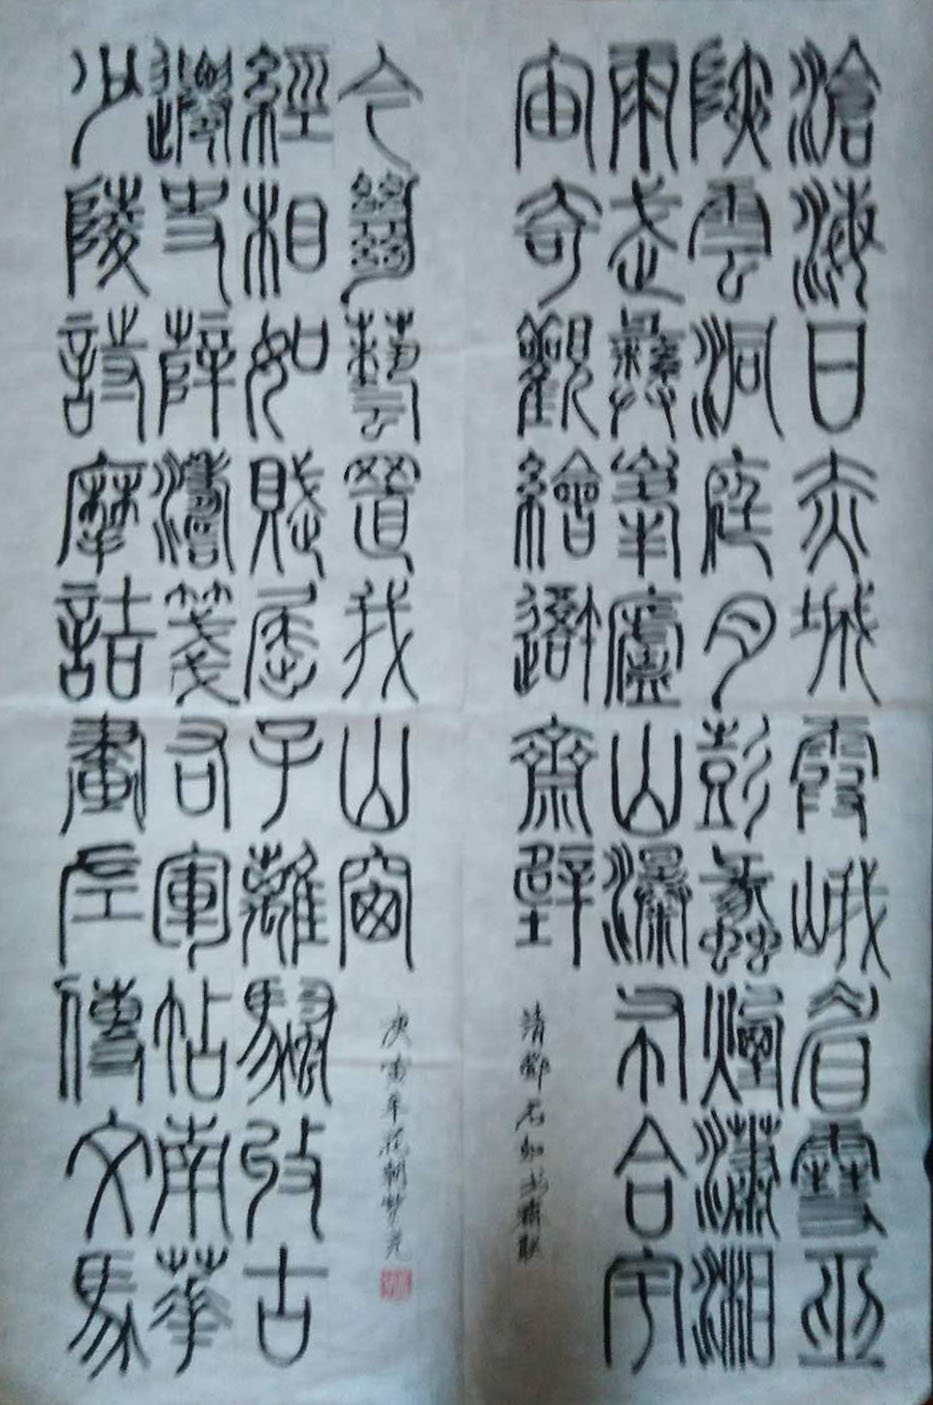 滄海日赤城霞峨眉雪巫
陜雲洞庭月彭蠡煙瀟湘
雨武彝峯廬山瀑布合宇
宙奇觀繪吾齋壁
清鄧石如書齋聯
少陵詩摩詰畫左傳文馬
遷史薛濤箋右軍帖南華
經相如賦屈子離騷收古
今絕藝置我山窗
庚寅年花朝